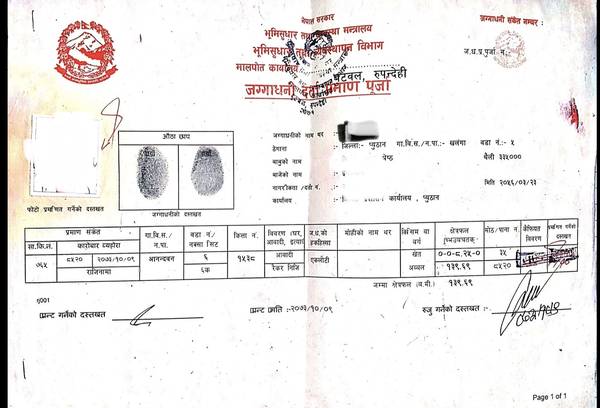 नेपाल सरकार
भूमिसुधार तथा व्यवस्था मन्त्रालय
भूमिसुधार तथा व्यवस्थापन विभाग
मालपोत कार्यालय
बुटवल, रुपन्देही
जग्गाधनी दर्ता प्रमाण पूर्जा
जग्गाधनी संकेत नम्बर:
ज.ध.प्र.पूर्जा नं.
औठा छाप
जग्गाधनीको दस्तखत
फोटो प्रमाणित गर्नेको दस्तखत
जग्गाधनीको नाम थर :
ठेगाना : जिल्ला:- प्युठान गा.वि.स./न.पा.:- खलंगा वडा नं.:- ५
बाबुको नाम
बाजेको नाम
नागरीकता /दर्ता नं. मिति २०५६/०३/२३
कार्यालय : कार्यालय , प्युठान
प्रमाण संकेत
सा.कि.नं. कारोबार व्यहोरा
गा.वि.स./न.पा.
वडा नं./नक्सा सिट
कित्ता नं.
विवरण (घर, आवादी, इत्यादि)
ज.ध.को हकहिस्सा
मोहीको नाम थर
किसिम वा वर्ग
क्षेत्रफल
मोठ/पाना नं.
कैफियत विवरण
प्रमाणित गर्नेको दस्तखत
७६५ ८५२० २०७३/१०/०९ आनन्दवन ६ १५३८ आवादी एकलौटी खेत ०-०-८.२५-० ३५
राजिनामा ६क रैकर निजि अव्वल १३९.६९ ८५२०
जम्मा क्षेत्रफल (व.मी.) १३९.६९
प्रिन्ट गर्नेको दस्तखत :
प्रिन्ट मिति :- २०७३/१०/०९
रुजु गर्नेको दस्तखत :
Page 1 of 1